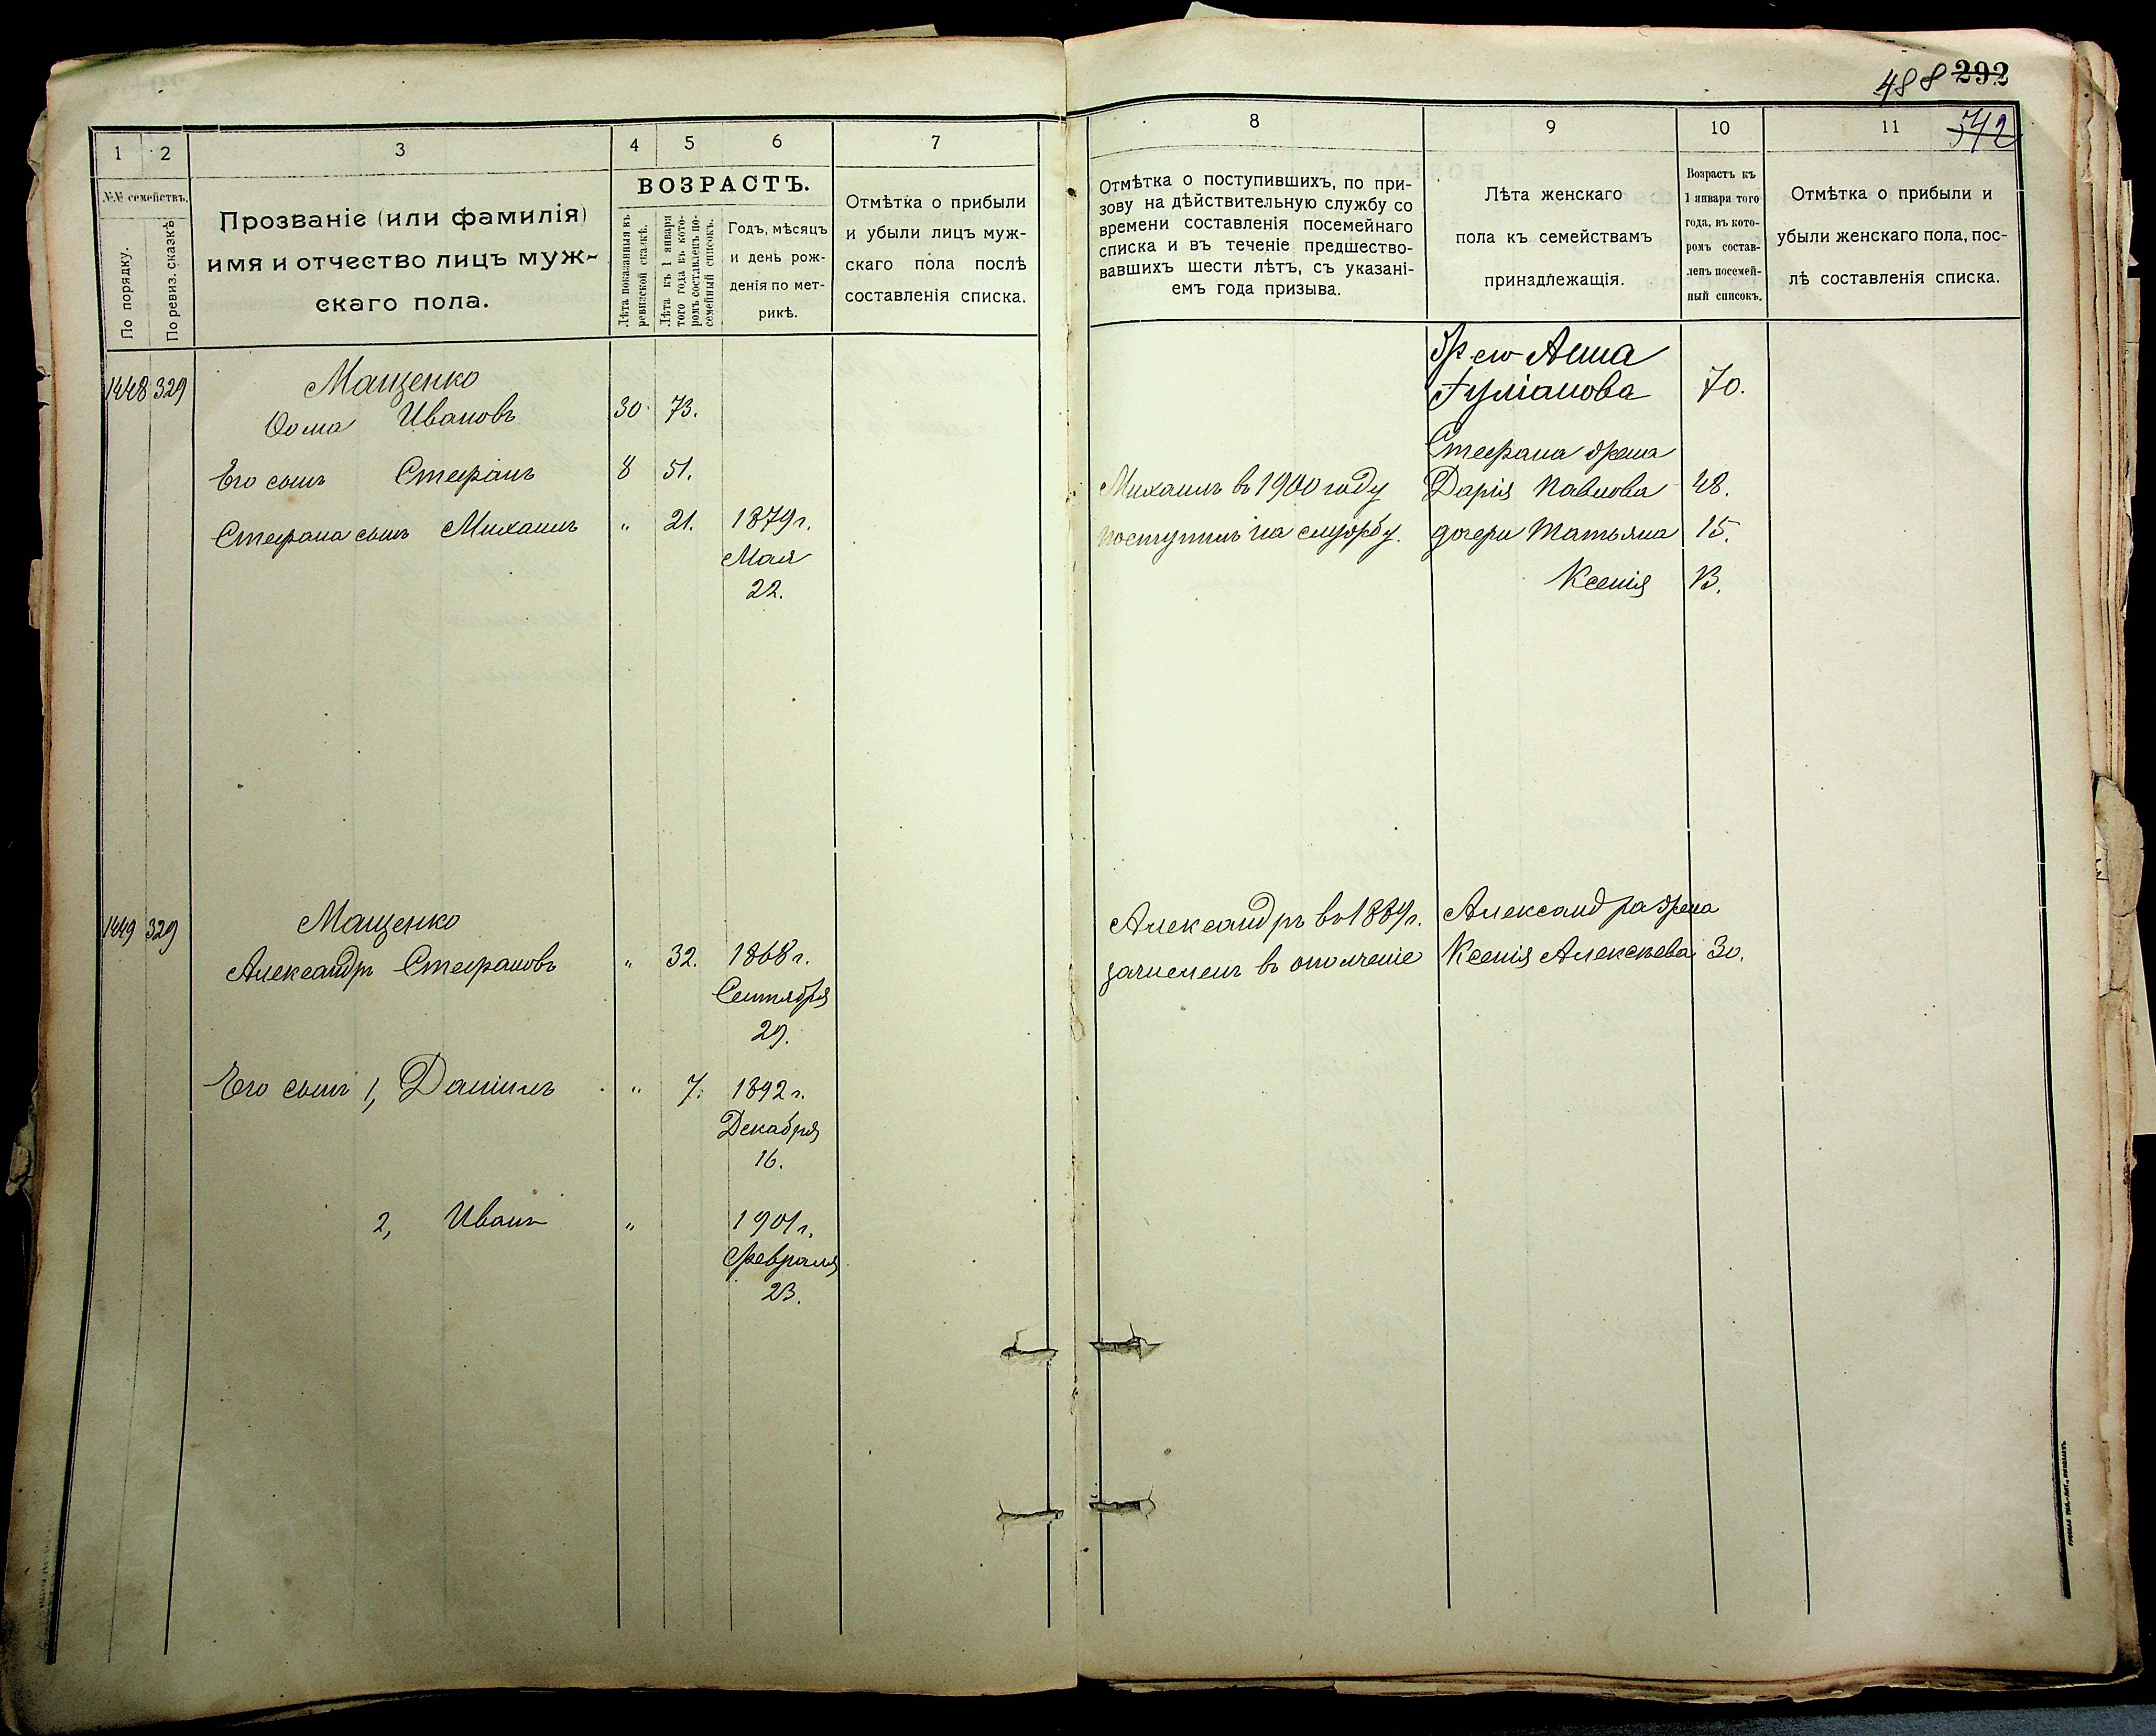 488 292
542
1 2 3 4 5 6 7
№№ семействъ.
По порядку.
По ревиз. сказкѣ
Прозваніе (или фамилія)
имя и отчество лицъ муж-
скаго пола.
ВОЗРАСТЪ.
Лѣта показанныя въ
ревизской сказкѣ.
Лѣта къ 1 января
того года въ кото-
ромъ составленъ по-
семейный списокъ.
Годъ, мѣсяцъ
и день рож-
денія по мет-
рикѣ.
Отмѣтка о прибыли
и убыли лицъ муж-
скаго пола послѣ
составленія списка.
1448 329 Мащенко
Ѳома Ивановъ 30 73.
Его сынъ Стефанъ 8 51.
Стефана сынъ Михаилъ " 21. 1879 г.
Мая
22.
1449 329 Мащенко
Александръ Стефановъ " 32. 1868 г.
Сентября
29.
Его сынъ 1, Даніилъ " 7. 1892 г.
Декабря
16.
2, Иванъ " 1901 г.
Февраля
23.
8 9 10 11
Отмѣтка о поступившихъ, по при-
зову на дѣйствительную службу со
времени составленія посемейнаго
списка и въ теченіе предшество-
вавшихъ шести лѣтъ, съ указані-
емъ года призыва.
Лѣта женскаго
пола къ семействамъ
принадлежащія.
Возрастъ къ
1 января того
года, въ кото-
ромъ состав-
ленъ посемей-
ный списокъ.
Отмѣтка о прибыли и
убыли женскаго пола, пос-
лѣ составленія списка.
Анна
70.
Стефана жена
Михаилъ въ 1900 году Дарія Павлова 48.
поступилъ на службу. дочери Татьяна 15.
Ксенія 13.
Александръ въ 1889 г. Александра жена
зачисленъ въ ополченіе Ксенія Алексѣева 30.